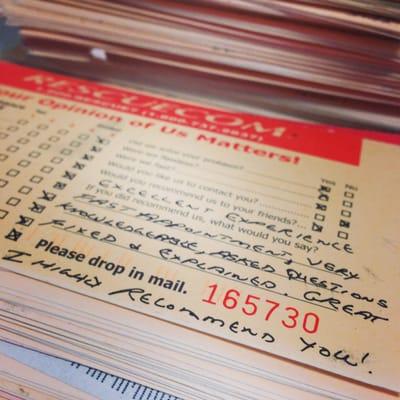 RESCUECOM
Your Opinion of Us Matters!
Did we solve your problem?
Were we
Were we fast?
Would you like us to contact you?
Would you recommend us to your friends?
If you did recommend us, what would you say?
Yes No
EXCELLENT EXPERIENCE
FIRST APPOINTMENT, VERY
KNOWLEDGEABLE, ASKED QUESTIONS
FIXED & EXPLAINED. GREAT
Please drop in mail. 165730
I HIGHLY RECOMMEND YOU!